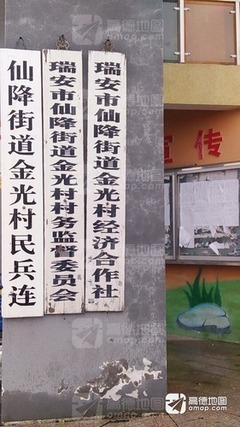 仙降街道金光村民兵连
瑞安市仙降街道金光村村务监督委员会
瑞安市仙降街道金光村经济合作社
宣传
高德地图
amap.com
高德地图
amap.com